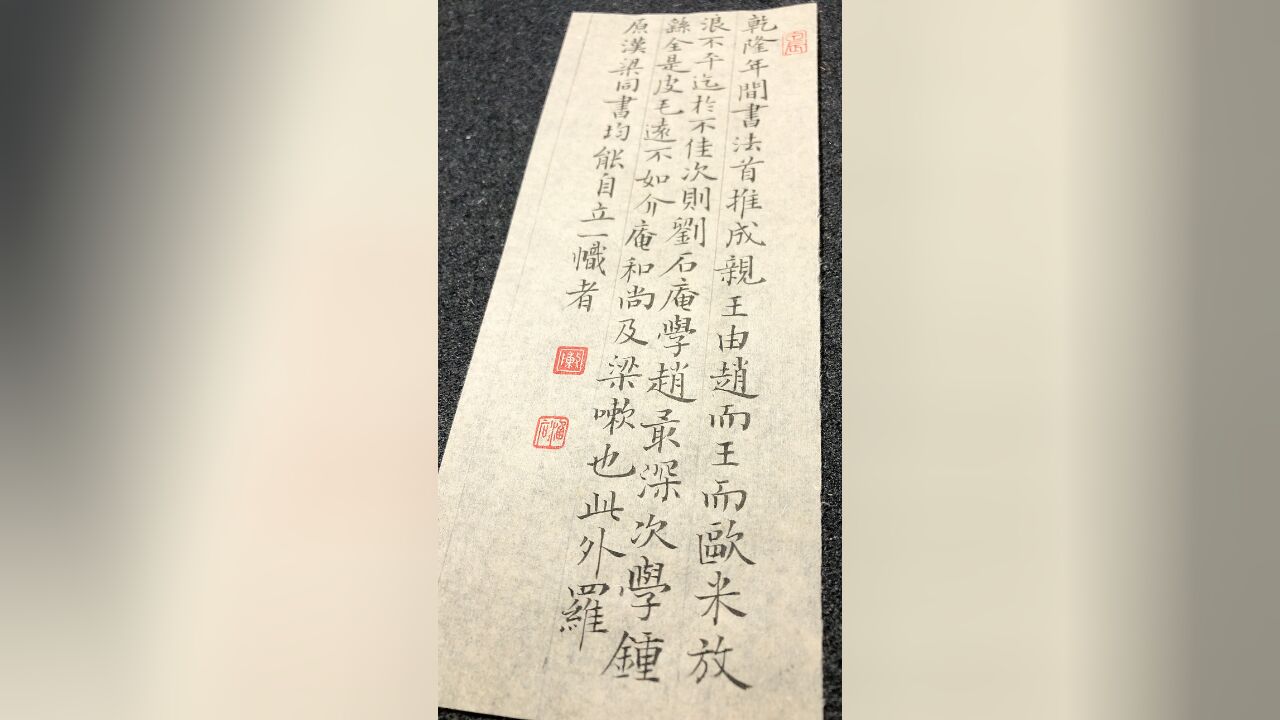 乾隆年間書法首推成親王由趙而王而歐米放
浪不平迄於不佳次則劉石庵學趙最深次學鍾
繇全是皮毛遠不如介庵和尚及梁嗽也此外羅
原漢梁同書均能自立一幟者